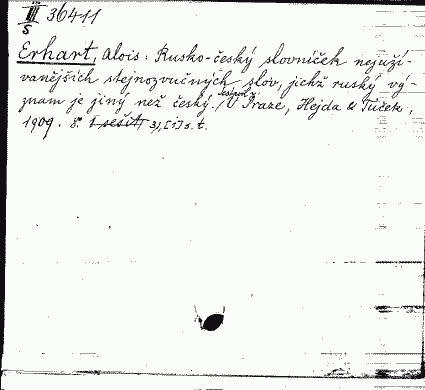 III 36411
5
Erhart, Alois: Rusko-český slovníček nejuží-
vanějších stejnozvučných slov, jichž ruský vý-
znam je jiný než český. V Praze, Hejda & Tuček,
1909. 8° 1 sešit 31, [1] s. t.